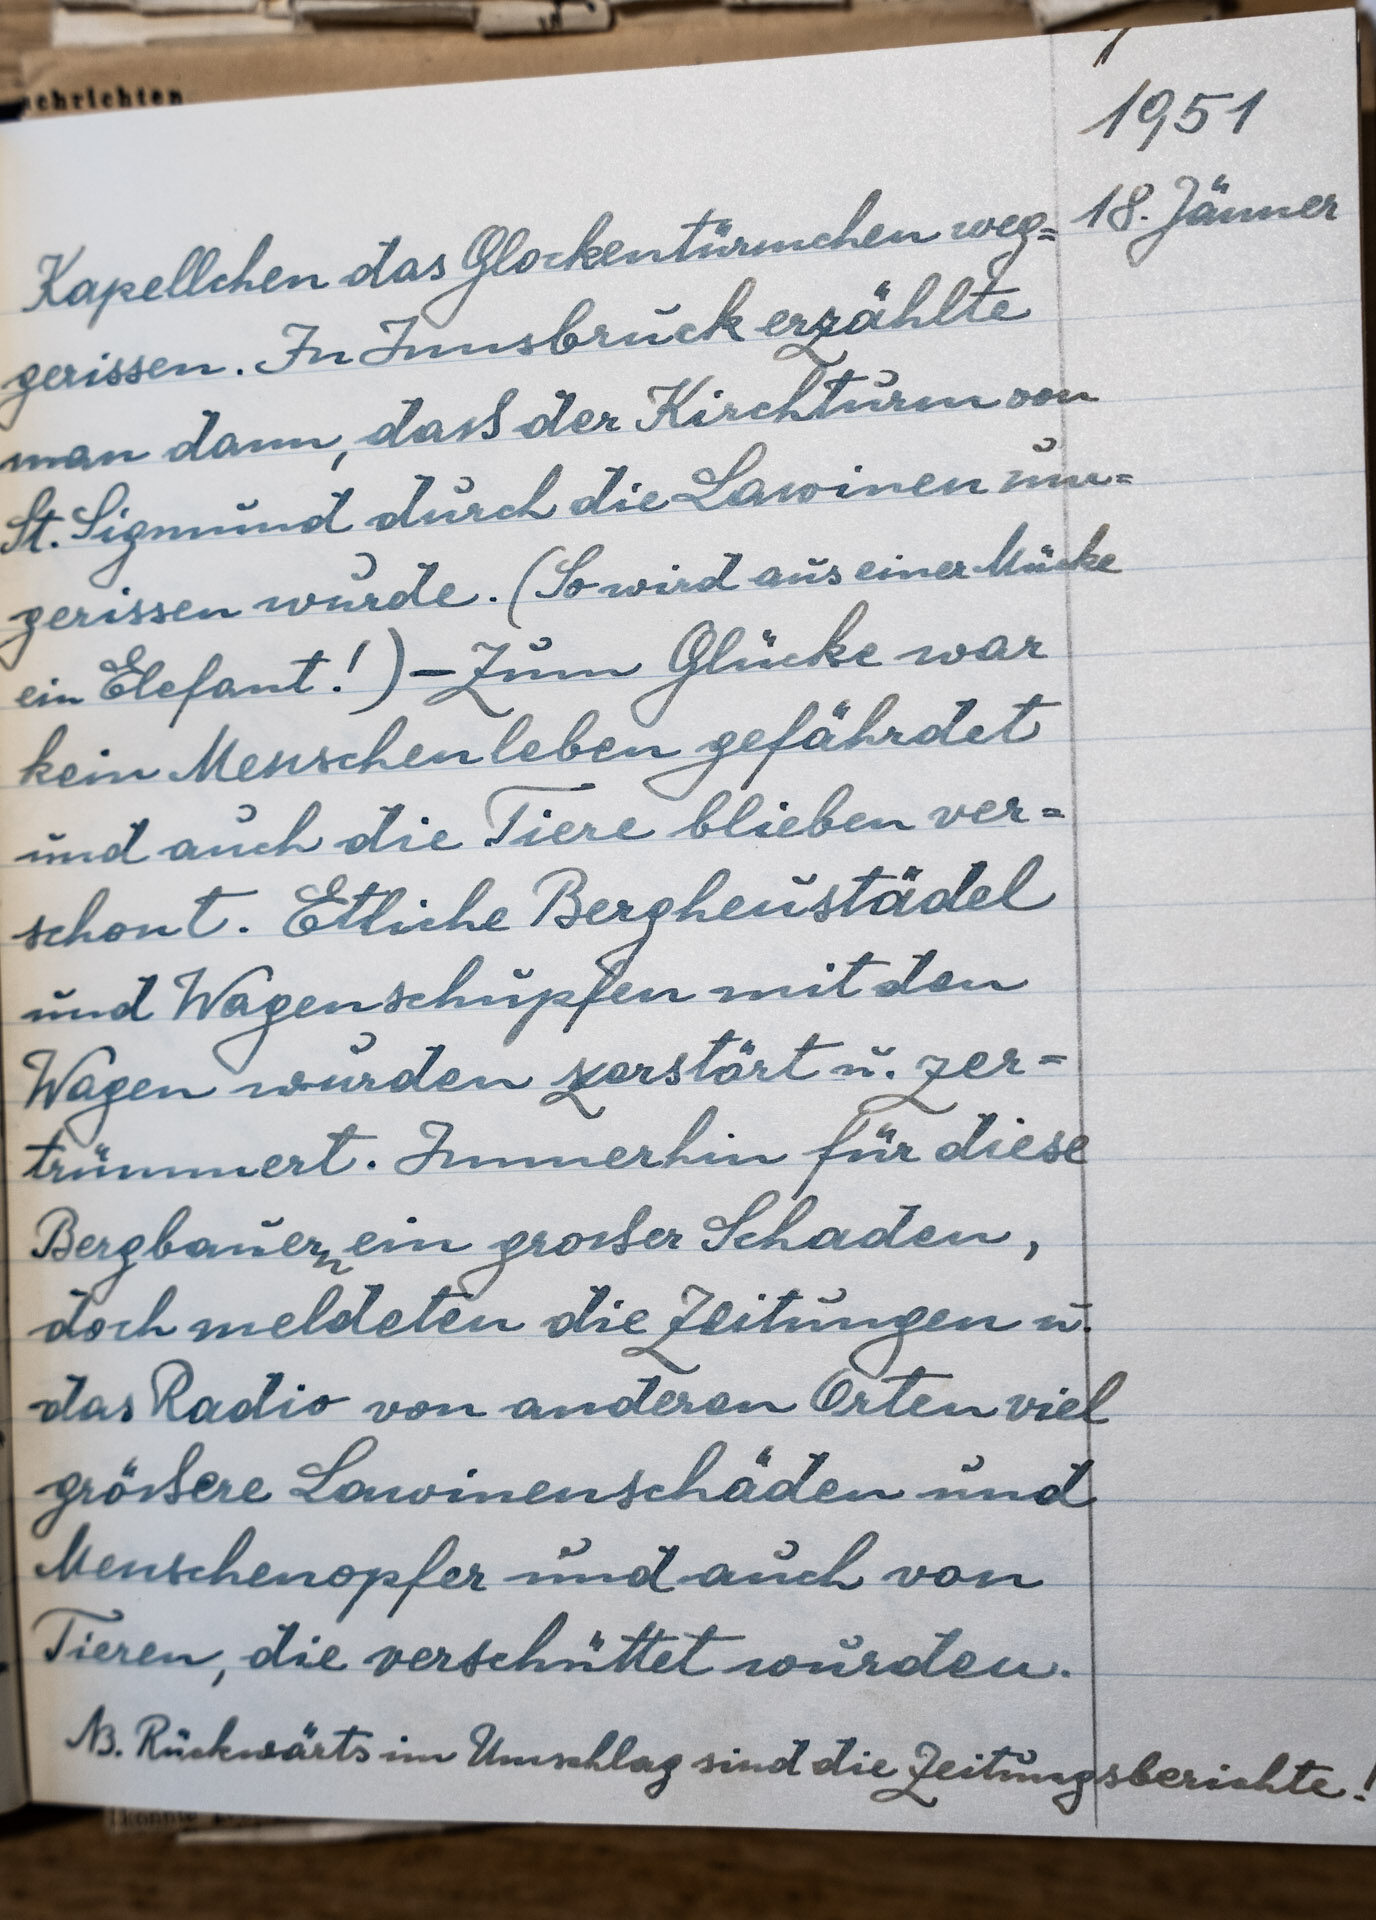 achrichten
1951
18. Jänner
Kapellchen das Glockentürmchen weg=
gerissen. In Innsbruck erzählte
man dann, daß der Kirchturm von
St. Sigmund durch die Lawinen um=
gerissen wurde. (So wird aus einer Mücke
ein Elefant!) – Zum Glücke war
kein Menschenleben gefährdet
und auch die Tiere blieben ver=
schont. Etliche Bergheustädel
und Wagenschupfen mit den
Wagen wurden zerstört u. zer=
trümmert. Immerhin für diese
Bergbauern ein großer Schaden,
doch meldeten die Zeitungen u.
das Radio von anderen Orten viel
größere Lawinenschäden und
Menschenopfer und auch von
Tieren, die verschüttet wurden.
NB. Rückwärts im Umschlag sind die Zeitungsberichte!